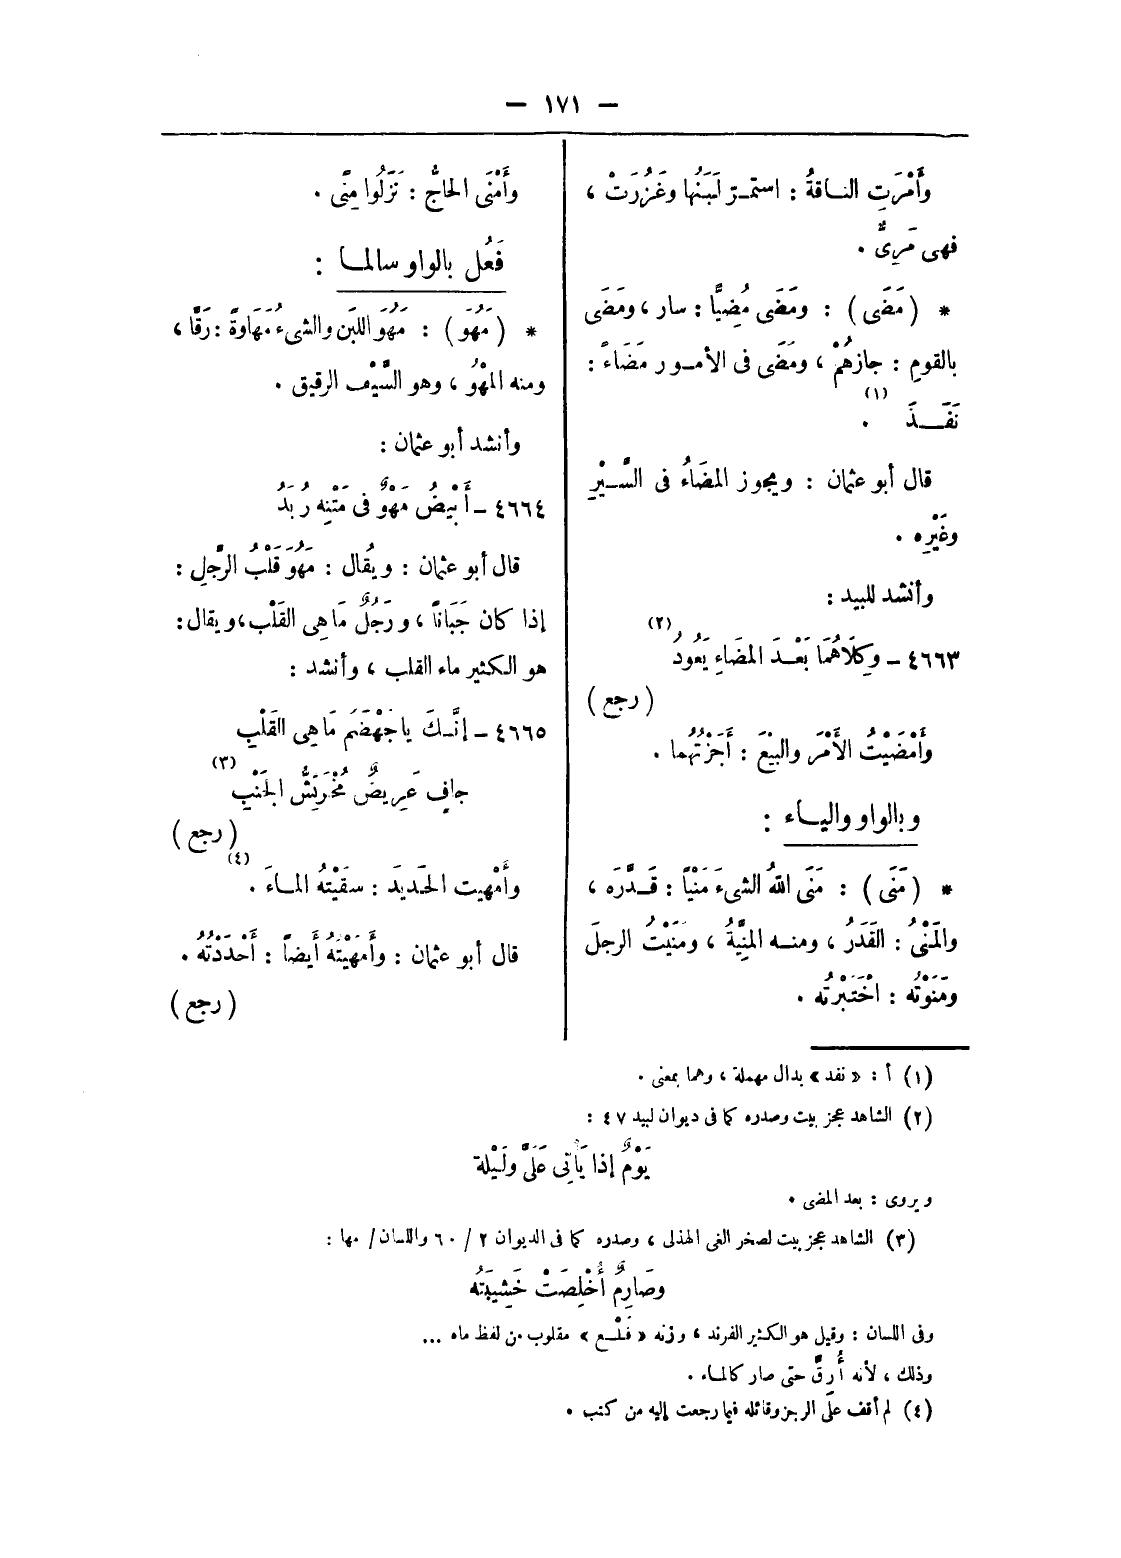 — ١٧١ —
وأَمْرَتِ الناقةُ : استمرّ لَبَنُها وغَزُرَتْ ،
فهى مَرِىٌّ .
* ( مَضَى ) : ومَضَى مُضِيًّا : سار ، ومَضَى
بالقومِ : جازهُمْ ، ومَضَى فى الأمور مَضَاءً :
نَفَذَ (١) .
قال أبو عثمان : ويجوز المضَاءُ فى السَّيْرِ
وغَيْرِه .
وأنشد للبيد :
٤٦٦٣ - وكِلَاهُمَا بَعْدَ المضَاءِ يَعُودُ (٢)
( رجع )
وأَمْضَيْتُ الأَمْرَ والبيْعَ : أَجَزْتُهُما .
وبالواو والياء :
* ( مَنَى ) : مَنَى اللهُ الشىءَ مَنْيًا : قَدَّرَه ،
والمَنْىُ : القَدَرُ ، ومنه المنِيَّةُ ، ومَنَيْتُ الرجلَ
ومَنَوْتُه : اخْتَبَرْتُه .
وأَمْنَى الحاجُّ : نَزَلُوا مِنًى .
فَعُل بالواو سالما :
* ( مَهُوَ ) : مَهُوَ اللبَن والشىءُ مَهَاوَةً : رَقَّا ،
ومنه المهْوُ ، وهو السَّيْف الرقيق .
وأنشد أبو عثمان :
٤٦٦٤ - أَبْيَضُ مَهْوٌ فى مَتْنِه رُبَدُ
قال أبو عثمان : ويُقال : مَهُوَ قَلْبُ الرَّجلِ :
إذا كان جَبَانًا ، ورَجُلٌ مَاهِى القَلْبِ، ويقال:
هو الكثير ماء القلب ، وأنشد :
٤٦٦٥ - إنَّكَ ياجَهْضَمُ مَاهِى القَلْبِ
جافٍ عَرِيضٌ مُجْرَئِشُّ الجَنْبِ (٣)
( رجع )
وأَمْهيت الحَدِيدَ : سقَيْتُهُ الماءَ (٤) .
قال أبو عثمان : وأَمهَيْتُهُ أَيضاً : أَحْدَدْتُهُ .
( رجع )
(١) أ : « نفد » بدال مهملة ، وهما بمعنى .
(٢) الشاهد عجز بيت وصدره كما فى ديوان لبيد ٤٧ :
يَوْمٌ إذا يَأتِى عَلَىَّ ولَيْلة
ويروى : بعد المضى .
(٣) الشاهد عجز بيت لصخر الغى الهذلى ، وصدره كما فى الديوان ٢ / ٦٠ واللسان/ مها :
وصَارِمٌ أُخْلِصَتْ خَشِيبَتُه
وفى اللسان : وقيل هو الكثير الفرند ، وزنه « فَلْع » مقلوب من لفظ ماه ...
وذلك ، لأنه أُرِقَّ حتى صار كالماء .
(٤) لم أقف على الرجز وقائله فيما رجعت إليه من كتب .